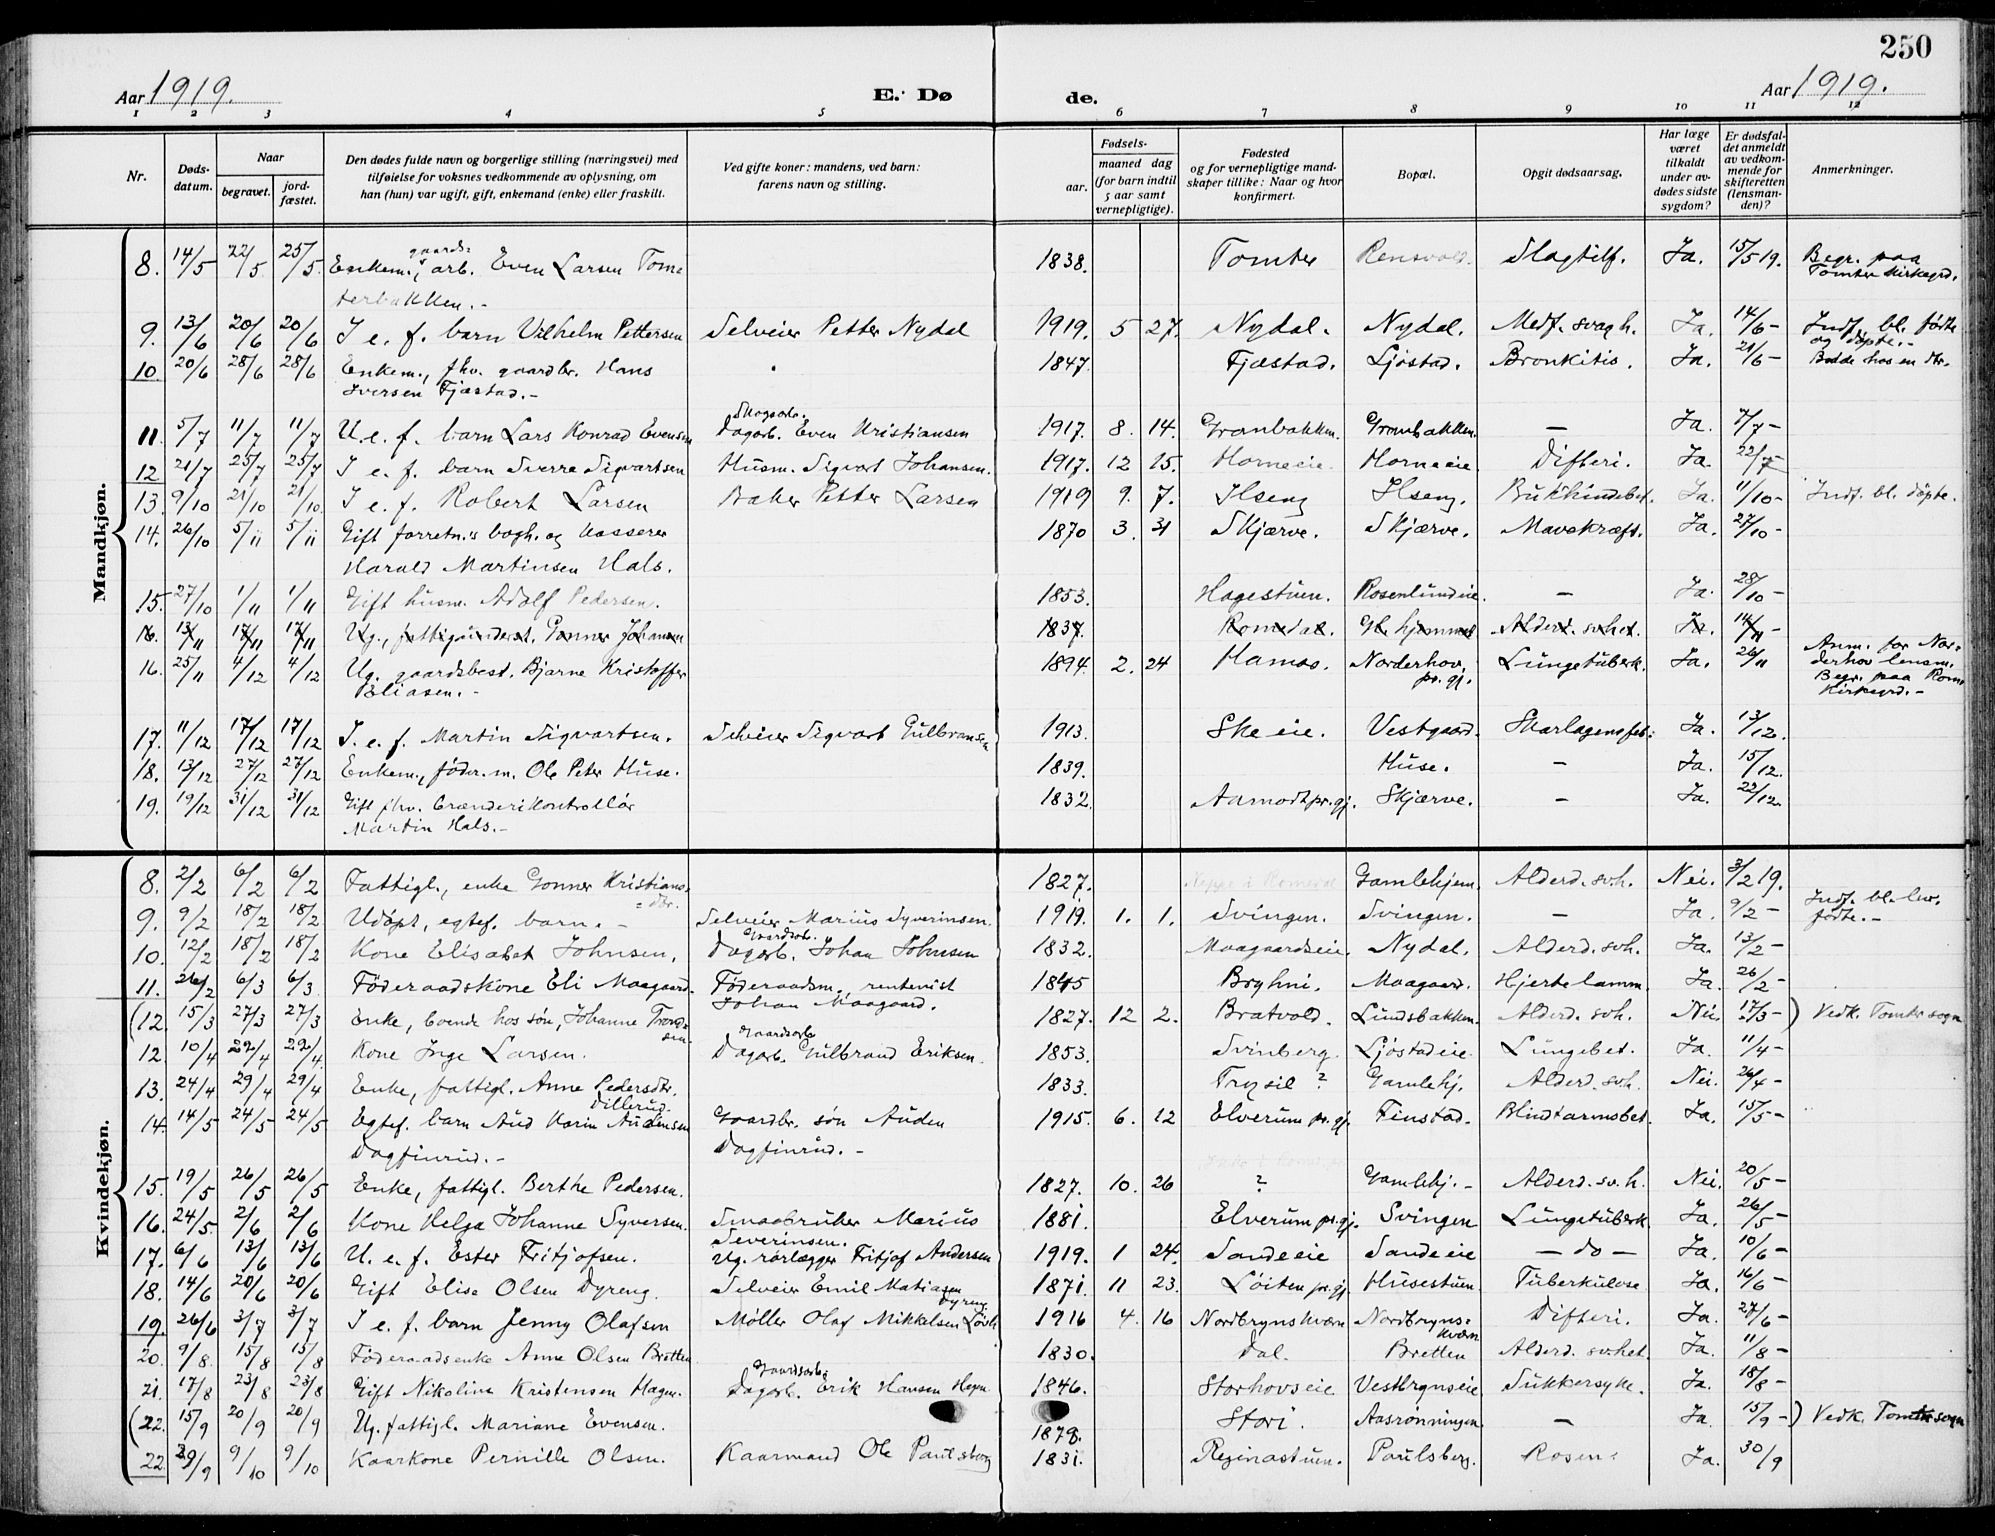 250
Aar 1919. E. Dø de. Aar 1919.
1 2 3 4 5 6 7 8 9 10 11 12
Nr. Døds-datum. Naar begravet. jord-fæstet. Den dødes fulde navn og borgerlige stilling (næringsvei) med tilføielse for voksnes vedkommende av oplysning, om han (hun) var ugift, gift, enkemand (enke) eller fraskilt. Ved gifte koner: mandens, ved barn: farens navn og stilling. Fødsels- aar. maaned dag (for barn indtil 5 aar samt vernepligtige). Fødested og for vernepligtige mandskaper tillike: Naar og hvor konfirmert. Bopæl. Opgit dødsaarsag. Har læge været tilkaldt under avdødes sidste sygdom? Er dødsfaldet anmeldt av vedkommende for skifteretten (lensmanden)? Anmerkninger.
Mandkjøn.
8. 14/5 22/5 25/5. Enkem., gaards- arb. Even Larsen Tom- 1838. Tomter Rensvold. Slagtilf. Ja. 15/5 19. Begr. paa
terbakken.- Tomter kirkegrd.
9. 13/6 20/6 20/6 I e. f. barn Vilhelm Pettersen Selveier Petter Nydal 1919. 5 27. Nydal. Nydal. Medf. svagh. Ja. 14/6 - Indf. bl. fødte
og døpte.-
10 20/6 28/6 28/6 Enkem., fhv. gaardbr. Hans 1847. Fjæstad. Ljøstad. Bronkitis. Ja. 21/6 - Bodde hos en dtr.
Iversen Fjæstad.-
Skogsarb.
11. 5/7 11/7 11/7 U. e. f. barn Lars Konrad Evensen Dagarb. Even Kristiansen 1917. 8. 14. Grønbakken. Grønbakken. — Ja. 7/7 -
12 21/7 25/7 25/7 I e. f. barn Sverre Sigvartsen Husm. Sigvart Johansen. 1917. 12 15. Horneeie. Horneeie. Difteri. Ja. 22/7
13. 9/10 21/10 21/10. I e. f. Robert Larsen Baker Petter Larsen 1919 9. 7. Ilseng Ilseng. Bukhindebet. Ja. 11/10- Indf. bl. døpte.
14. 26/10 5/11 5/11 Gift forretn., bogh. og kasserer 1870 3. 31 Skjærve. Skjærve. Mavekræft. Ja. 27/10 -
Harald Martinsen Hals.
15. 27/10 1/11 1/11 Gift husm. Adolf Pedersen. 1853. Hagestuen. Rosenlundeie. — Ja. 28/10 -
16. 13/11 17/11 17/11 Ug., fattigunderst. Gunner Johansen 1837. Romedal. Gl. hjemmet Alderd. svhet. Ja. 14/11 -
16. 25/11 4/12 4/12 Ug. gaardsbest. Bjarne Kristoffer 1894. 2. 24 Hamar. Norderhov, pr. gj. Lungetuberk. Ja. 26/11 Anm. for Nor-
Eliasen.- derhov lensm.
Begr. paa Rom.
kirkegrd.-
17. 11/12 17/12 17/12 I. e. f. Martin Sigvartsen. Selveier Sigvart Gulbransen 1913. Ske eie. Vestgaard. Skarlagensfeb. Ja. 13/12.
18. 13/12 27/12 27/12 Enkem., føder. m. Ole Peter Huse. 1839. Huse. — Ja. 15/12.
19. 19/12 31/12 31/12 Gift fhv. brænderikontrollør 1832. Aamodt pr. gj. Skjærve. — Ja. 22/12.
Martin Hals.-
Kvindekjøn.
8. 2/2 6/2 6/2 Fattigl., enke Gonner Kristians- 1827. Gamlehjem. Alderd. svh. Nei. 3/2 19.
dtr.
9. 9/2 18/2 18/2 Udøpt, egtef. barn.- Selveier Marius Syverinsen. 1919. 1. 1. Svingen. Svingen. — Ja. 9/2 - Indf. bl. lev.
fødte.-
Gaardsarb.
10. 12/2 18/2 18/2 Kone Elisabet Johnsen. Dagarb. Johan Johnsen 1832. Maagaardseie. Nydal. Alderd. svh. Ja. 13/2 -
11. 26/2 6/3 6/3. Føderaadskone Eli Maagaard. Føderaadsm. rentenist 1845 Bryhni. Maagaard. Hjertelamm. Ja. 26/2 -
Johan Maagaard.
(12. 15/3 27/3 27/3 Enke, boende hos søn, Johanne Trond- 1827. 12 2. Bratvold. Lundsbakken. Alderd. svh. Nei. 17/3 - ) Vedk. Tomter sogn
sen.
Gaardsarb.
12. 10/4 22/4 22/4. Kone Inge Larsen. Dagarb. Gulbrand Eriksen. 1853. Svinberg. Ljøstadeie. Lungebet. Ja. 11/4 -
13. 24/4 29/4 29/4 Enke, fattigl. Anne Pedersdtr. 1833. Trysil ? Gamlehj. Alderd. svh. Nei. 26/4 -
Dillerud.
14. 14/5 24/5 24/5 Egtef. barn Aud Karin Audensen Gaardbr. søn Auden 1915. 6. 12 Elverum pr. gj. Finstad. Blindtarmsbet. Ja. 15/5 -
Dagfinrud.- Dagfinrud.-
15. 19/5 26/5 26/5 Enke, fattigl. Berthe Pedersen. 1827. 10. 26 ? Gamlehj.- Alderd. sv.h. Nei. 20/5 -
16. 24/5. 2/6 2/6 Kone Helga Johanne Syversen. Smaabruker Marius 1881. Elverum pr. gj. Svingen Lungetuberk. Ja. 26/5 -
Severinsen.
17. 6/6 13/6 13/6 U. e. f. Ester Fritjofsen. Ug. rørlægger Fritjof Andersen 1919. 1 24. Sandeeie Sandeeie — do — Ja. 10/6 -
18. 14/6 20/6 20/6 Gift Elise Olsen Dyreng. Selveier Emil Matiasen 1871. 11 23. Løiten pr. gj. Husestuen. Tuberkulose Ja. 16/6 -
Dyreng.
19. 26/6 3/7 3/7 I e. f. barn Jenny Olafsen Møller Olaf Mikkelsen 1916 4. 16 Nordbrynskværn Nordbryns-kværn Difteri. Ja. 27/6 -
20. 9/8. 15/8 15/8 Føderaadsenke Anne Olsen Bretten 1830. Dal. Bretten Alderd. svhet. Ja. 11/8 -
Gaardsarb.
21. 17/8 23/8 23/8 Gift Nikoline Kristensen Hagen. Dagarb. Erik Hansen 1846. Storhovseie Vestbrynseie Sukkersyke. Ja. 18/8 -
(22. 15/9 20/9 20/9 Ug. fattigl. Mariane Evensen. 1878. Stori. Aasrønningen. — Ja. 15/9 - ) Vedk. Tomter sogn
22. 29/9 9/10 9/10 Kaarkone Pernille Olsen. Kaarmand Ole Paulsberg 1831. Reginastuen. Paulsberg. Rosen. Ja. 30/9